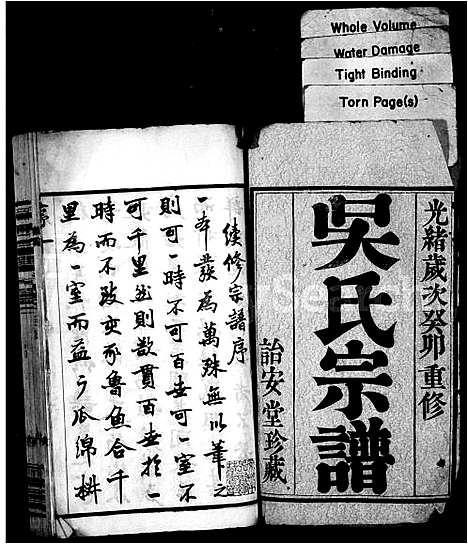 Whole Volume
Water Damage
Tight Binding
Torn Page(s)
光緒歲次癸卯重修
吳氏宗譜
詒安堂珍藏
續修宗譜序
一本發為萬殊無以筆之
則可一時不可百世可一室不
可千里然則欲貫百世於一
時而不致亥豕魯魚合千
里為一室而益之瓜綿椒